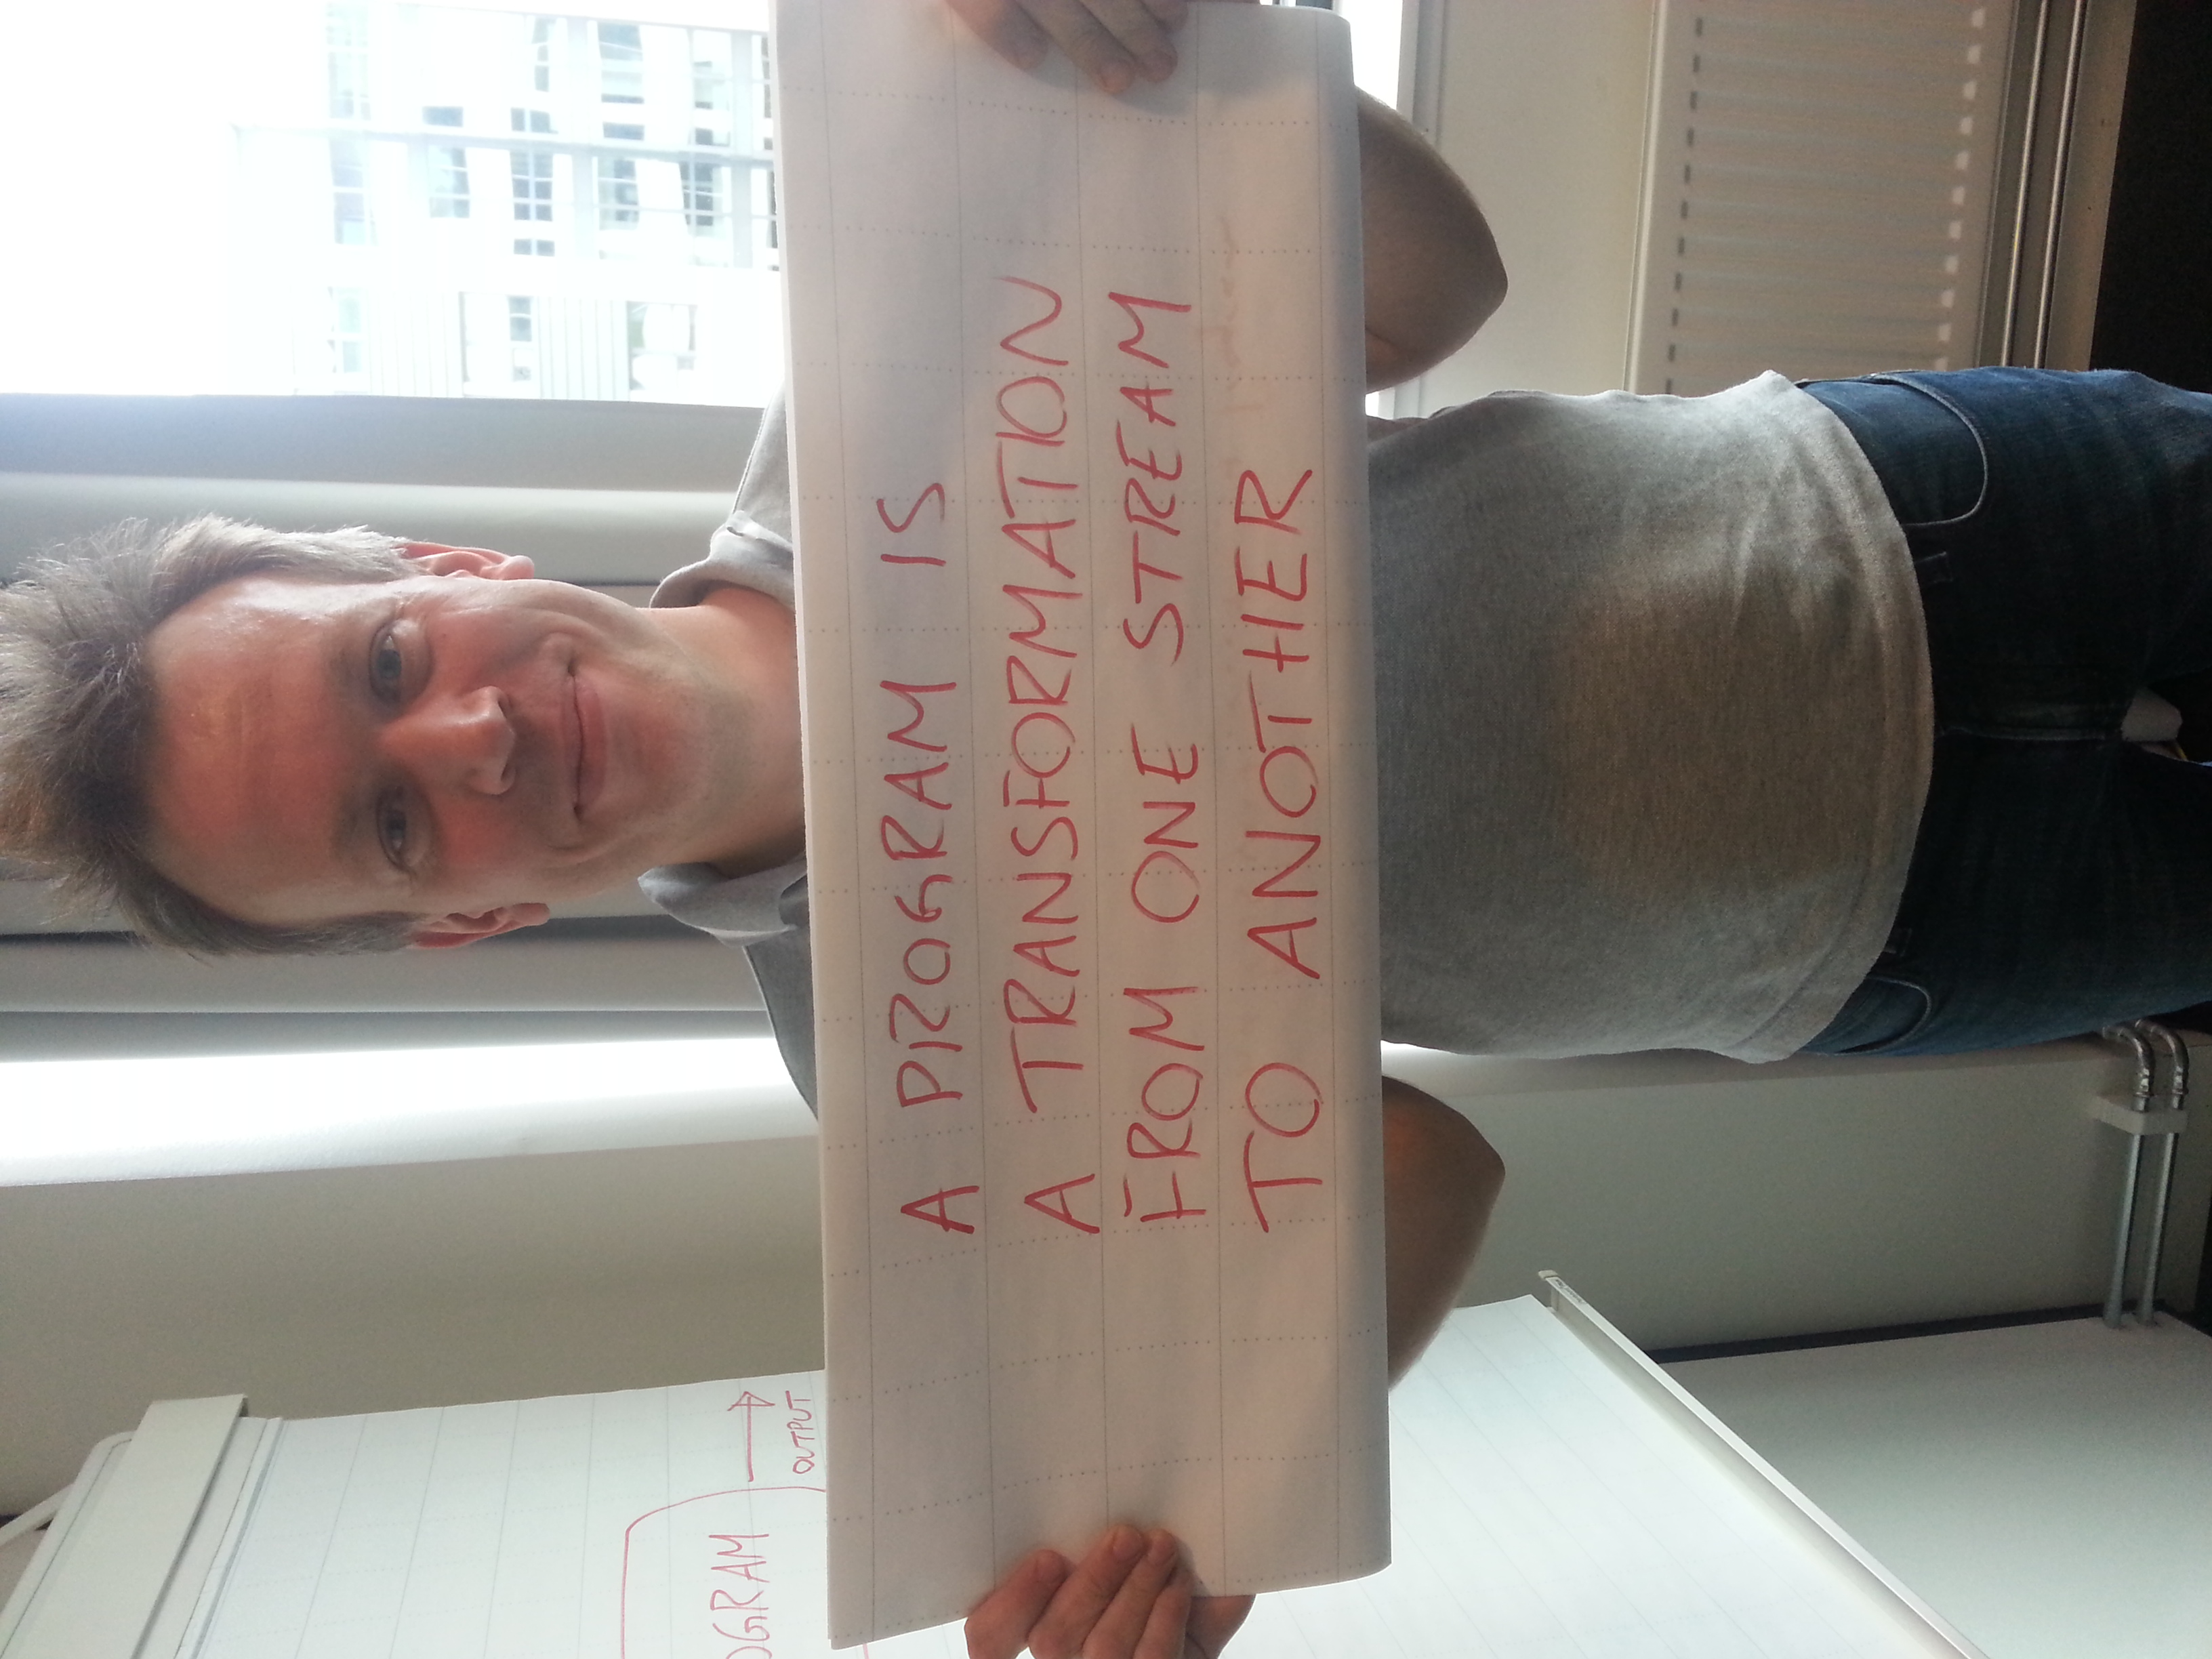 OGRAM
OUTPUT
A PROGRAM IS
A TRANSFORMATION
FROM ONE STREAM
TO ANOTHER